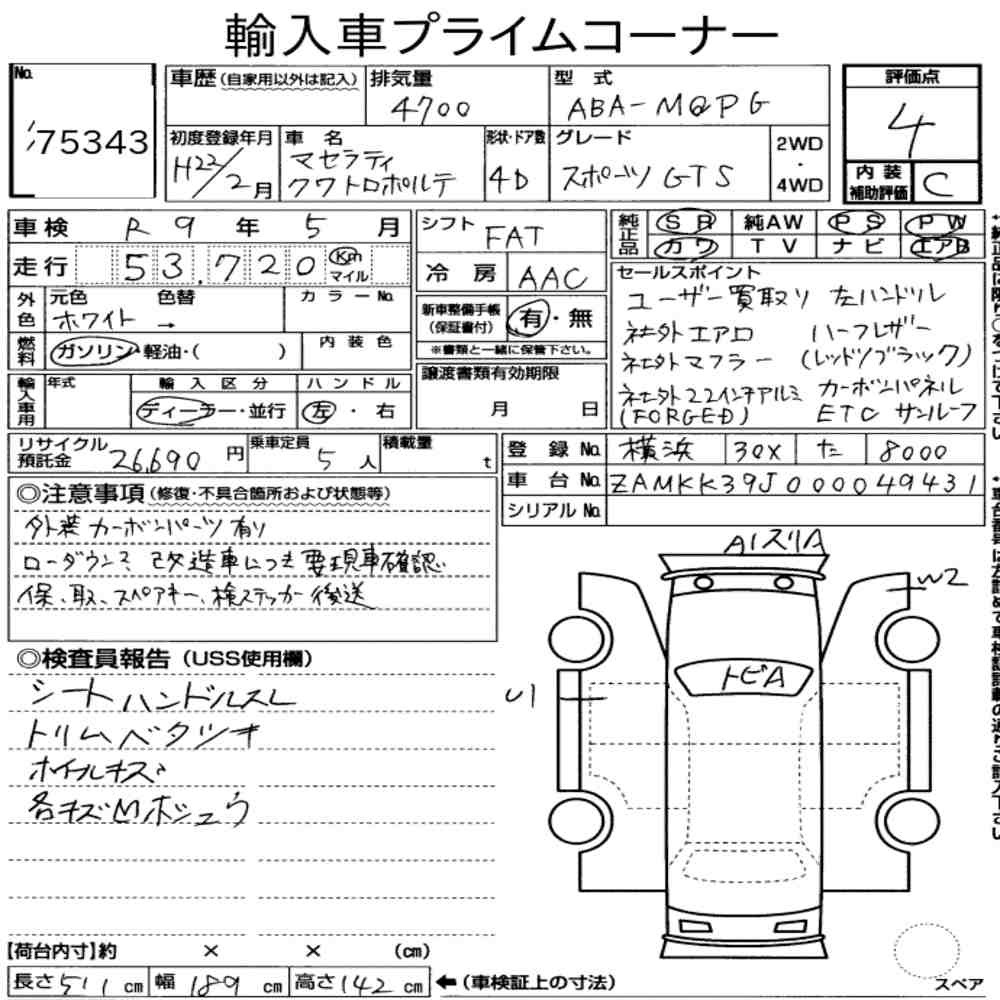 輸入車プライムコーナー
No. 75343
車歴(自家用以外は記入) 排気量 4700 型式 ABA-MQPG
初度登録年月 H22/2月 車名 マセラティ クワトロポルテ 形状・ドア数 4D グレード スポーツGTS 2WD・4WD
評価点 4
内装補助評価 C
車検 R9年5月 シフト FAT
走行 53,720 Km マイル 冷房 AAC
純正品 SR 純AW PS PW
カワ TV ナビ エアB
外色 元色 ホワイト 色替 → カラーNo.
燃料 ガソリン・軽油・( ) 内装色
新車整備手帳(保証書付) 有・無
※書類と一緒に保管下さい。
輸入車用 年式 輸入区分 ディーラー・並行 ハンドル 左・右
譲渡書類有効期限 月 日
セールスポイント
ユーザー買取り 左ハンドル
社外エアロ ハーフレザー
社外マフラー (レッド/ブラック)
社外22インチアルミ カーボンパネル
(FORGED) ETC サンルーフ
リサイクル預託金 26,690円 乗車定員 5人 積載量 t
登録No. 横浜 30X た 8000
車台No. ZAMKK39J000049431
シリアルNo.
◎注意事項(修復・不具合箇所および状態等)
外装カーボンパーツ有り
ローダウン 改造車につき要現車確認
保、取、スペアキー、検ステッカー後送
◎検査員報告(USS使用欄)
シートハンドルスレ
トリムベタツキ
ホイルキズ
各キズMホシュウ
A1スリA
W2
トビA
U1
【荷台内寸】約 × × (cm)
長さ511cm 幅189cm 高さ142cm ←(車検証上の寸法)
スペア